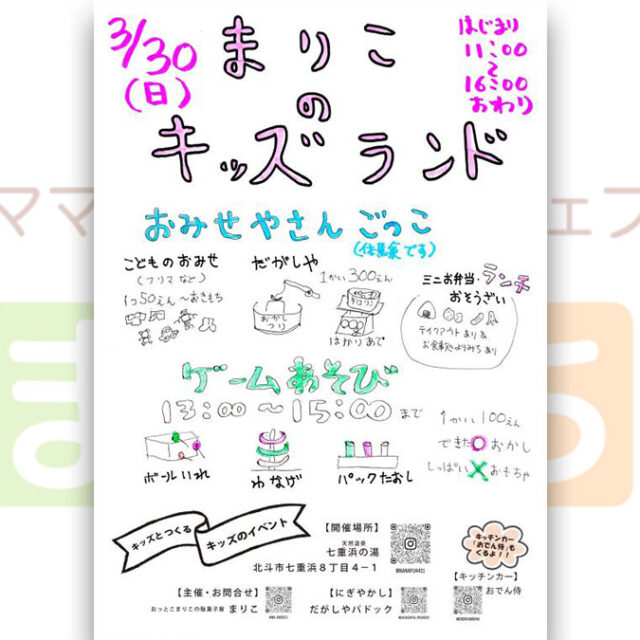 3/30
(日)
まりこ
の
キッズランド
はじまり
11:00
〜
16:00
おわり
おみせやさんごっこ
こどものおみせ
(フリマなど)
1つ50えん〜おきもち
だがしや
1かい300えん
おかし
つり
はかりあて
ミニお弁当・ランチ
おそうざい
テイクアウトあり&
お食事処よりみちあり
ゲームあそび
13:00〜15:00まで
1かい100えん
できた○おかし
しっぱい×おもちゃ
ボールいれ
わなげ
パックたおし
キッズとつくる
キッズのイベント
【開催場所】
天然温泉
七重浜の湯
北斗市七重浜8丁目4−1
キッチンカー
「おでん侍」も
くるよ!!
【キッチンカー】
おでん侍
【主催・お問合せ】
おっとこまりこの駄菓子屋 まりこ
【にぎやかし】
だがしやパドック
ママ
ェフ
ま
る